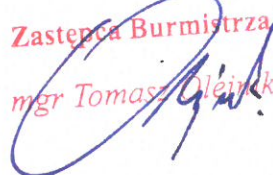 Zastępca Burmistrza
mgr Tomasz Olejnik